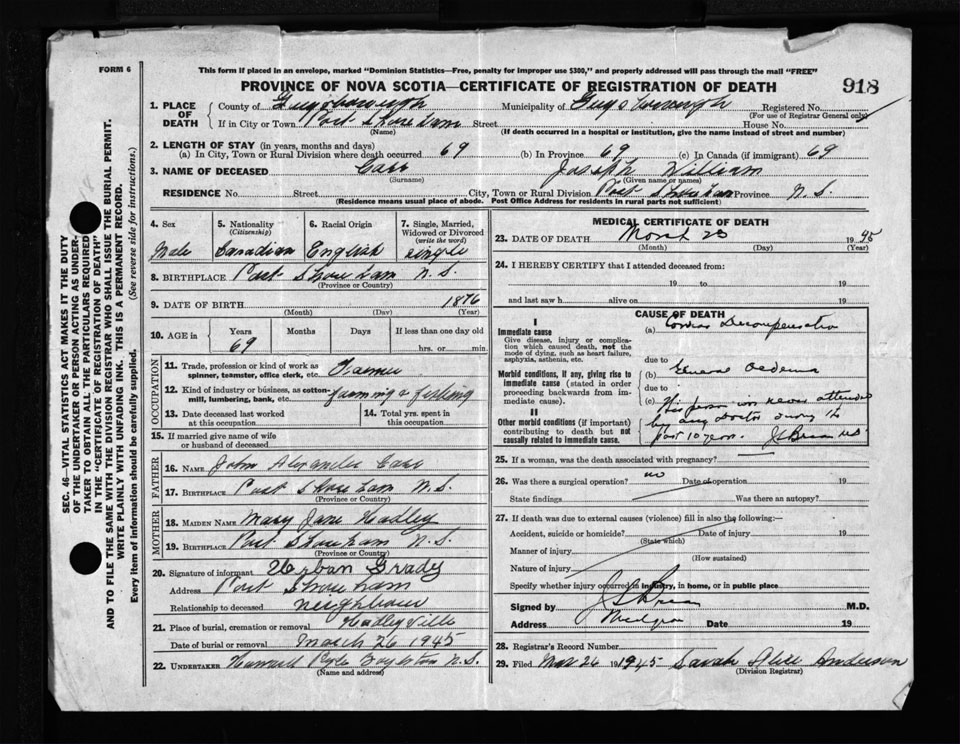 FORM 6
This form if placed in an envelope, marked "Dominion Statistics—Free, penalty for improper use $300," and properly addressed will pass through the mail "FREE"
PROVINCE OF NOVA SCOTIA—CERTIFICATE OF REGISTRATION OF DEATH
918
1. PLACE OF DEATH
County of Guysborough Municipality of Guysborough Registered No.
(For use of Registrar General only)
If in City or Town Port Shoreham Street House No.
(Name) (If death occurred in a hospital or institution, give the name instead of street and number)
2. LENGTH OF STAY (in years, months and days)
(a) In City, Town or Rural Division where death occurred 69 (b) In Province 69 (c) In Canada (if immigrant) 69
3. NAME OF DECEASED Joseph William
(Surname) (Given name or names)
RESIDENCE No. Street City, Town or Rural Division Port Shoreham Province N.S.
(Residence means usual place of abode. Post Office Address for residents in rural parts not sufficient)
4. Sex
Male
5. Nationality
(Citizenship)
Canadian
6. Racial Origin
English
7. Single, Married, Widowed or Divorced
(write the word)
single
8. BIRTHPLACE Port Shoreham N.S.
(Province or Country)
9. DATE OF BIRTH 1876
(Month) (Day) (Year)
10. AGE in Years Months Days If less than one day old
69 hrs. or min.
OCCUPATION
11. Trade, profession or kind of work as spinner, teamster, office clerk, etc. Farmer
12. Kind of industry or business, as cotton-mill, lumbering, bank, etc. farming & fishing
13. Date deceased last worked at this occupation
14. Total yrs. spent in this occupation
15. If married give name of wife or husband of deceased
FATHER
16. NAME John Alexander
17. BIRTHPLACE Port Shoreham N.S.
(Province or Country)
MOTHER
18. MAIDEN NAME Mary Jane Hadley
19. BIRTHPLACE Port Shoreham N.S.
(Province or Country)
20. Signature of informant Urban Grady
Address Port Shoreham
Relationship to deceased neighbour
21. Place of burial, cremation or removal Hadleyville
Date of burial or removal March 26 1945
22. UNDERTAKER Boylston N.S.
(Name and address)
MEDICAL CERTIFICATE OF DEATH
23. DATE OF DEATH March 1945
(Month) (Day) (Year)
24. I HEREBY CERTIFY that I attended deceased from:
19 to 19
and last saw h alive on 19
CAUSE OF DEATH
I
Immediate cause
Give disease, injury or complication which caused death, not the mode of dying, such as heart failure, asphyxia, asthenia, etc.
(a) Decompensation
due to
Morbid conditions, if any, giving rise to immediate cause (stated in order proceeding backwards from immediate cause).
(b) General Oedema
due to
(c) This person was never attended
by any Doctor during the
past 10 years.
II
Other morbid conditions (if important) contributing to death but not causally related to immediate cause.
25. If a woman, was the death associated with pregnancy?
26. Was there a surgical operation? no Date of operation 19
State findings Was there an autopsy?
27. If death was due to external causes (violence) fill in also the following:—
Accident, suicide or homicide? Date of injury 19
(State which)
Manner of injury
(How sustained)
Nature of injury
Specify whether injury occurred in industry, in home, or in public place
Signed by M.D.
Address Date 19
28. Registrar's Record Number
29. Filed Mar 26 1945 Sarah Alice Anderson
(Division Registrar)
SEC. 46—VITAL STATISTICS ACT MAKES IT THE DUTY
OF THE UNDERTAKER OR PERSON ACTING AS UNDER-
TAKER TO OBTAIN ALL THE PARTICULARS REQUIRED
IN THE "CERTIFICATE OF REGISTRATION OF DEATH"
AND TO FILE THE SAME WITH THE DIVISION REGISTRAR WHO SHALL ISSUE THE BURIAL PERMIT.
WRITE PLAINLY WITH UNFADING INK. THIS IS A PERMANENT RECORD.
Every item of information should be carefully supplied. (See reverse side for instructions.)